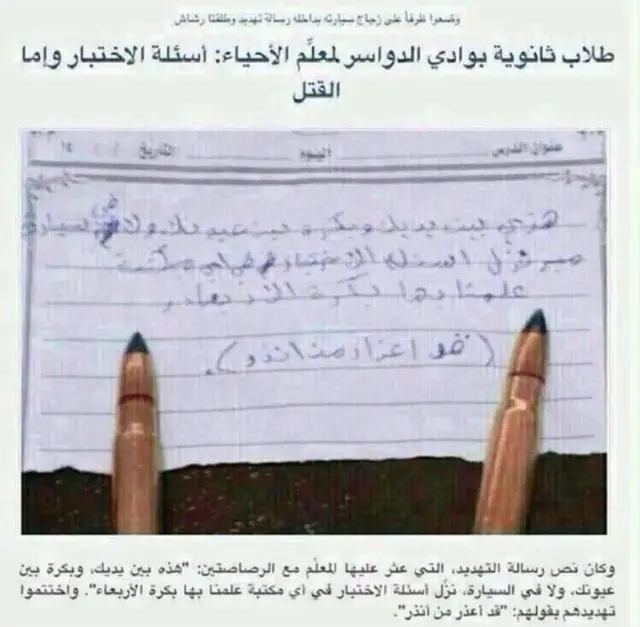 وضعوا ظرفاً على زجاج سيارته بداخله رسالة تهديد وطلقتا رشاش
طلاب ثانوية بوادي الدواسر لمعلِّم الأحياء: أسئلة الاختبار وإما
القتل
عنوان الدرس اليوم التاريخ ١٤
هذي بين يديك وبكرة بين عيونك ولا في سيارة
نزل اسئلة الاختبار في اي مكتبة
علمنا بها بكرة الاربعاء
(قد اعذر من انذر).
وكان نص رسالة التهديد، التي عثر عليها المعلِّم مع الرصاصتين: "هذه بين يديك، وبكرة بين
عيونك، ولا في السيارة، نزِّل أسئلة الاختبار في أي مكتبة علمنا بها بكرة الأربعاء". واختتموا
تهديدهم بقولهم: "قد أعذر من أنذر".